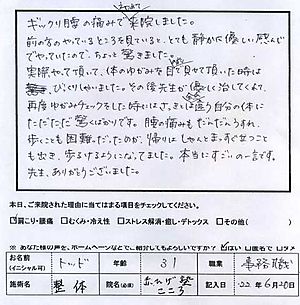 ギックリ腰の痛みで来院しました。
前の方のやっているところを見ていると、とても静かな優しい感じ
でやっていたので、ちょっと驚きました。
実際やって頂いて、体のゆがみを目で見せて頂いた時は
びっくりしました。その後先生が優しく治してくれて、
再度ゆがみチェックをした時には、さっきとは違う自分の体に
ただただ驚くばかりです。腰の痛みもだんだんうすれ、
歩くことも困難だったのが、帰りはしゃんとまっすぐ立つこと
も出き、歩けるようになってました。本当にすごいの一言です。
先生、ありがとうございました。
本日、ご来院された理由に当てはまる項目をチェックしてください。
☑肩こり・腰痛 □むくみ・冷え性 □ストレス解消・癒し・デトックス □その他( )
※ あなた様の声を、ホームページなどでご紹介してもよろしいですか? ☑はい □匿名で □ダメ
お名前 (イニシャル可) トッド 年齢 31 職業 事務職
施術名 整体 院名(必須) こころ 記入日 22年6月20日